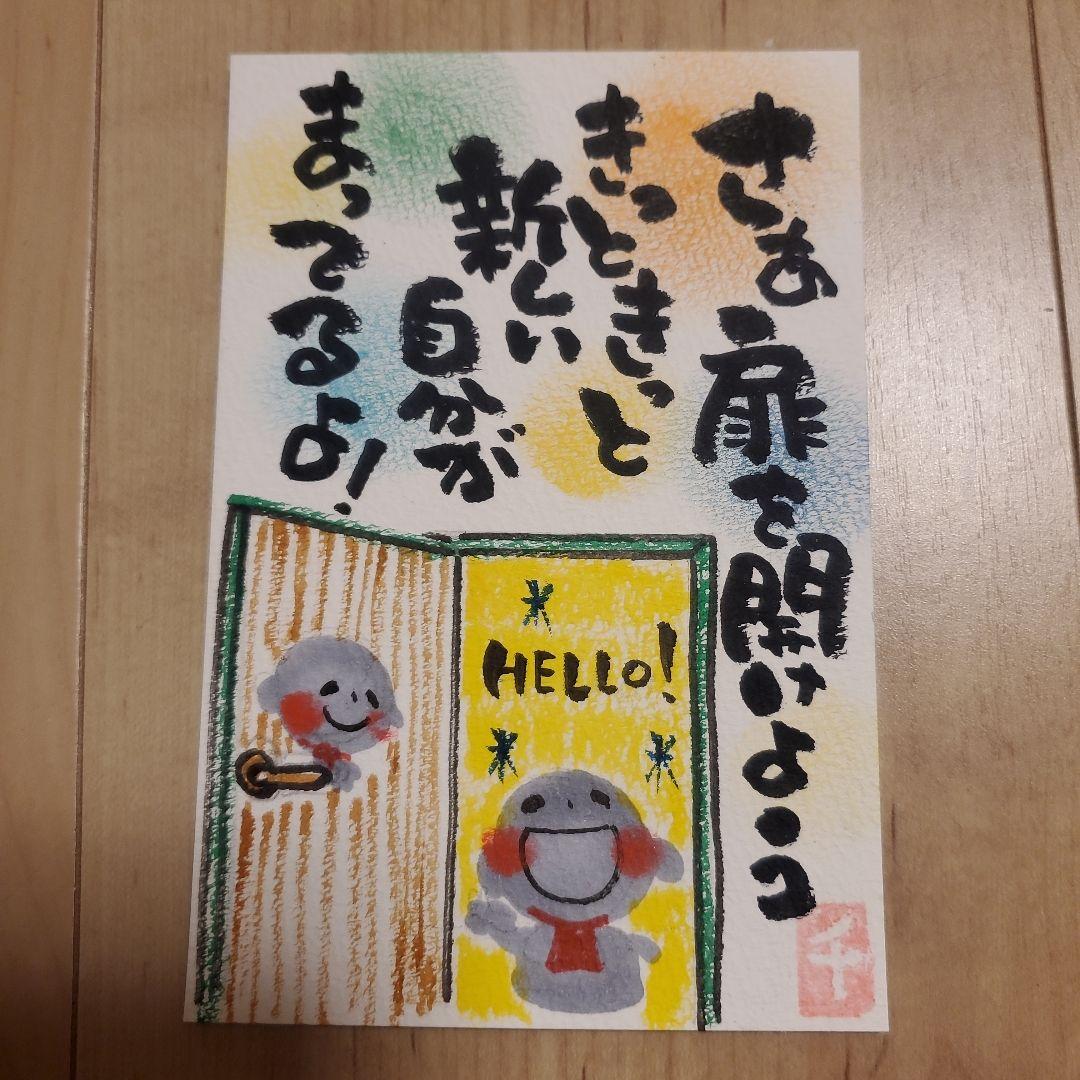 さぁ扉を開けよ・・コ
きっときっと
新しい
自分が
まってるよ!
HELLO!
千